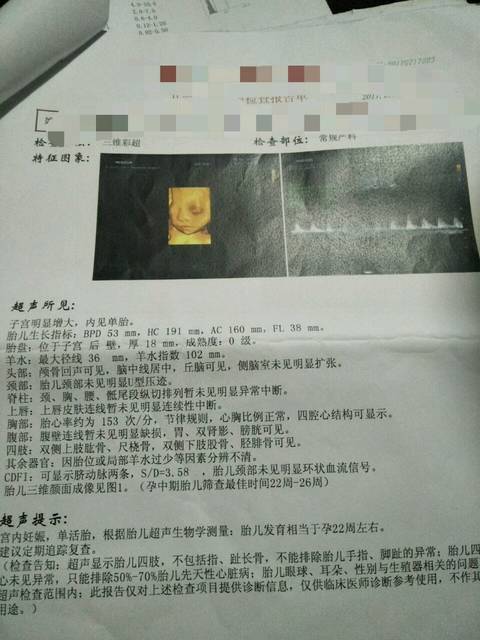 4.0-10.0
2.0-7.0
0.8-4.0
0.12-1.20
0.02-0.50
检查报告单
三维彩超 检查部位: 常规产科
特征图象:
超声所见:
子宫明显增大，内见单胎。
胎儿生长指标: BPD 53 mm, HC 191 mm, AC 160 mm, FL 38 mm.
胎盘: 位于子宫 后 壁，厚 18 mm，成熟度: 0 级.
羊水: 最大径线 36 mm, 羊水指数 102 mm.
头部: 颅骨回声可见，脑中线居中，丘脑可见，侧脑室未见明显扩张。
颈部: 胎儿颈部未见明显U型压迹。
脊柱: 颈、胸、腰、骶尾段纵切排列暂未见明显异常中断。
上唇: 上唇皮肤连线暂未见明显连续性中断。
胸部: 胎心率约为 153 次/分，节律规则，心胸比例正常，四腔心结构可显示。
腹部: 腹壁连线暂未见明显缺损，胃、双肾影、膀胱可见。
四肢: 双侧上肢肱骨、尺桡骨，双侧下肢股骨、胫腓骨可见。
其余器官: 因胎位或局部羊水过少等因素分辨不清。
CDFI: 可见示脐动脉两条, S/D=3.58 ，胎儿颈部未见明显环状血流信号。
胎儿三维颜面成像见图1。（孕中期胎儿筛查最佳时间22周-26周）
超声提示:
宫内妊娠，单活胎，根据胎儿超声生物学测量: 胎儿发育相当于孕22周左右。
建议定期追踪复查。
（检查告知: 超声显示胎儿四肢，不包括指、趾长骨，不能排除胎儿手指、脚趾的异常; 胎儿四
心未见异常，只能排除50%-70%胎儿先天性心脏病; 胎儿眼球、耳朵、性别与生殖器相关的问题
超声检查范围内; 此报告仅对上述检查项目提供诊断信息，仅供临床医师诊断参考使用，不作其
用途。）